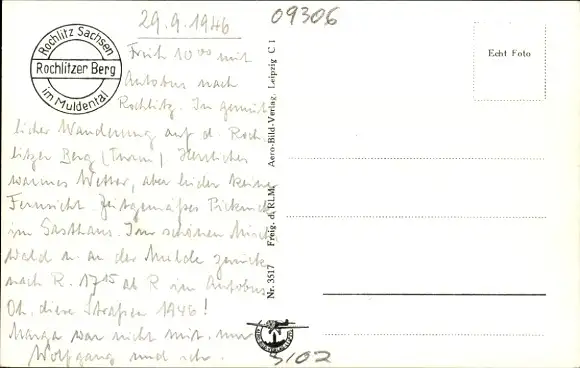 29.9.1946
09306
Rochlitz Sachsen
Rochlitzer Berg
im Muldental
Früh 10⁰⁰ mit
Autobus nach
Rochlitz. In gemüt
licher Wanderung auf d. Roch
litzer Berg (Turm). Herrliches
warmes Wetter, aber leider keine
Fernsicht. Zeitgemäßes Picknick
im Gasthaus. Im schönen Misch
wald u. an der Mulde zurück
nach R. 17¹⁵ ab R im Autobus
Oh, diese Straßen 1946!
Marga war nicht mit, nur
Wolfgang und ich.
Nr. 3517 Freig. d. RLM. Aero-Bild-Verlag, Leipzig C 1
Echt Foto
5102